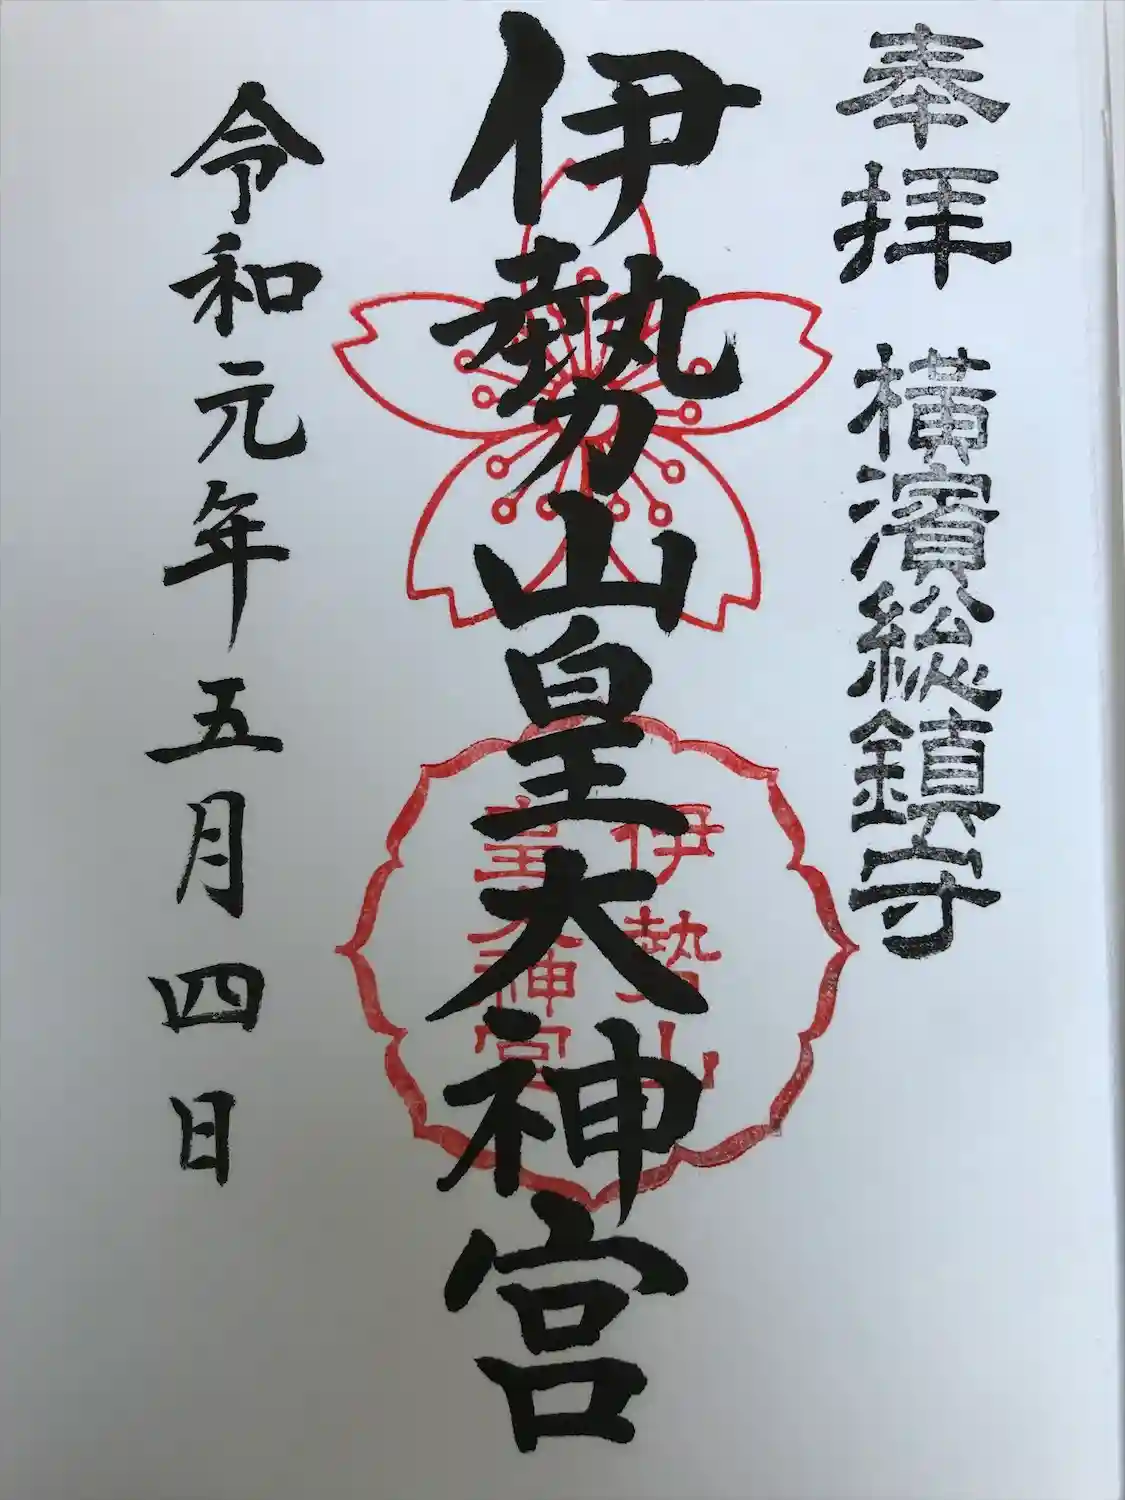 奉拝 横濱総鎮守
伊勢山皇大神宮
伊勢山
皇大神宮
令和元年五月四日